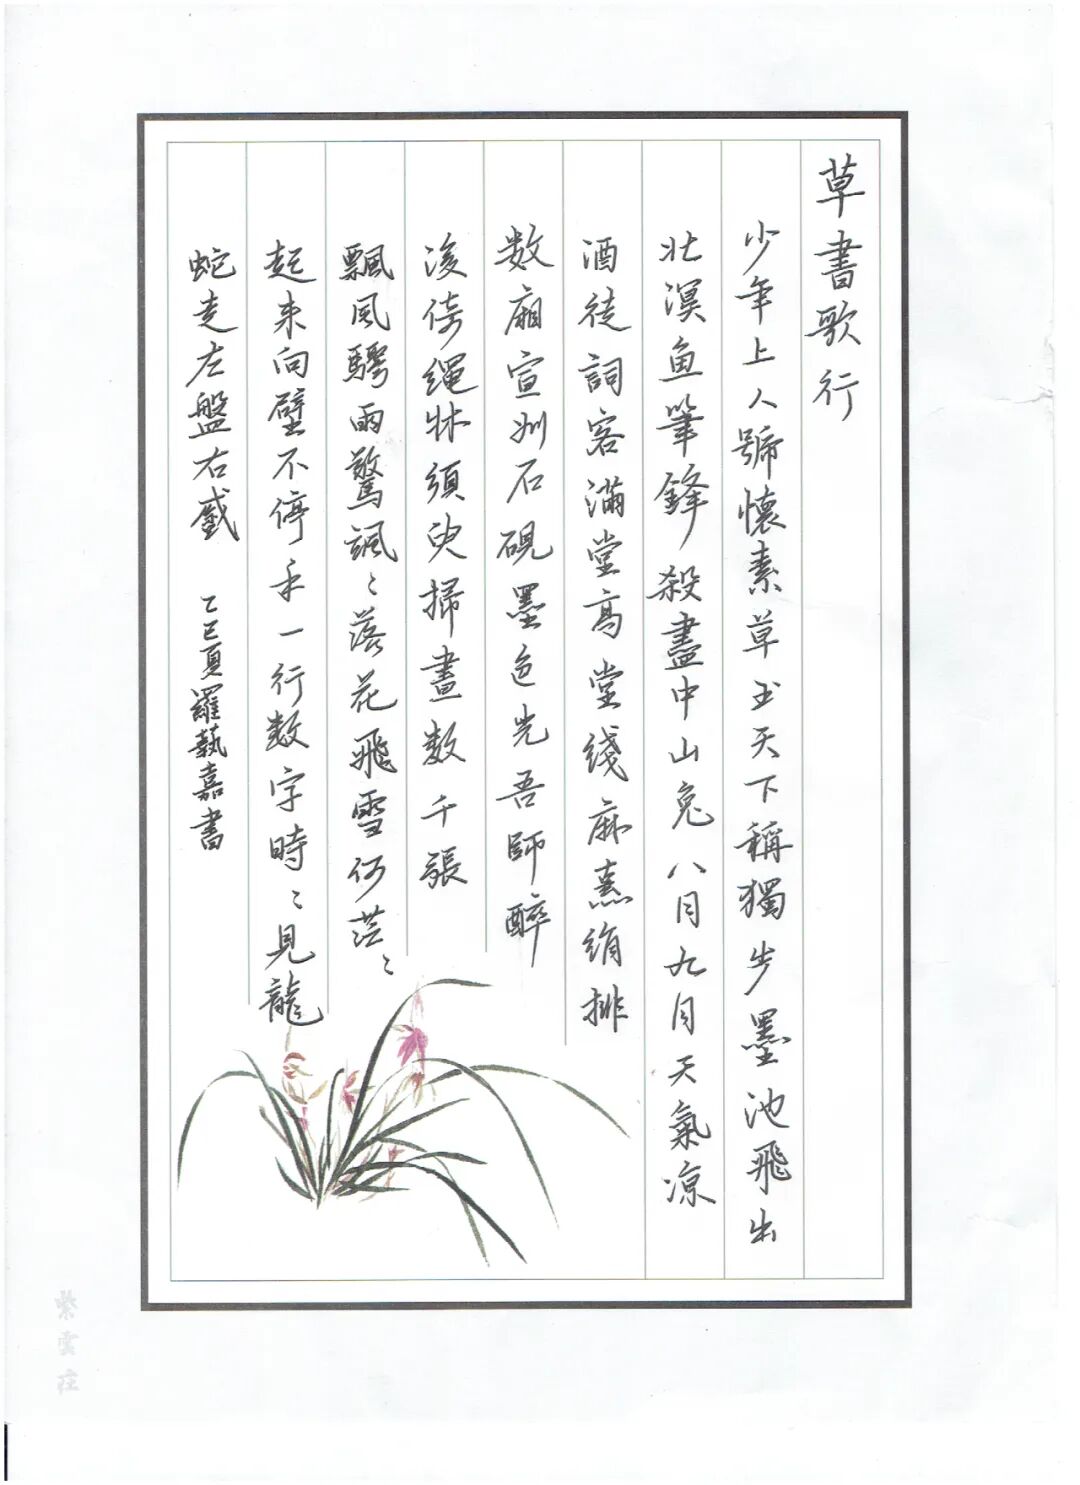 草書歌行
少年上人號懷素草书天下稱獨步墨池飛出
北溟鱼筆鋒殺盡中山兔八月九月天氣凉
酒徒詞客滿堂高堂䇳麻素絹排
数廂宣州石硯墨色光吾師醉
後倚繩牀須臾掃盡数千張
飄風驟雨驚颯〻落花飛雪何茫〻
起来向壁不停手一行数字時〻見龍
蛇走左盤右蹙
乙巳夏羅藝嘉書
紫雲莊